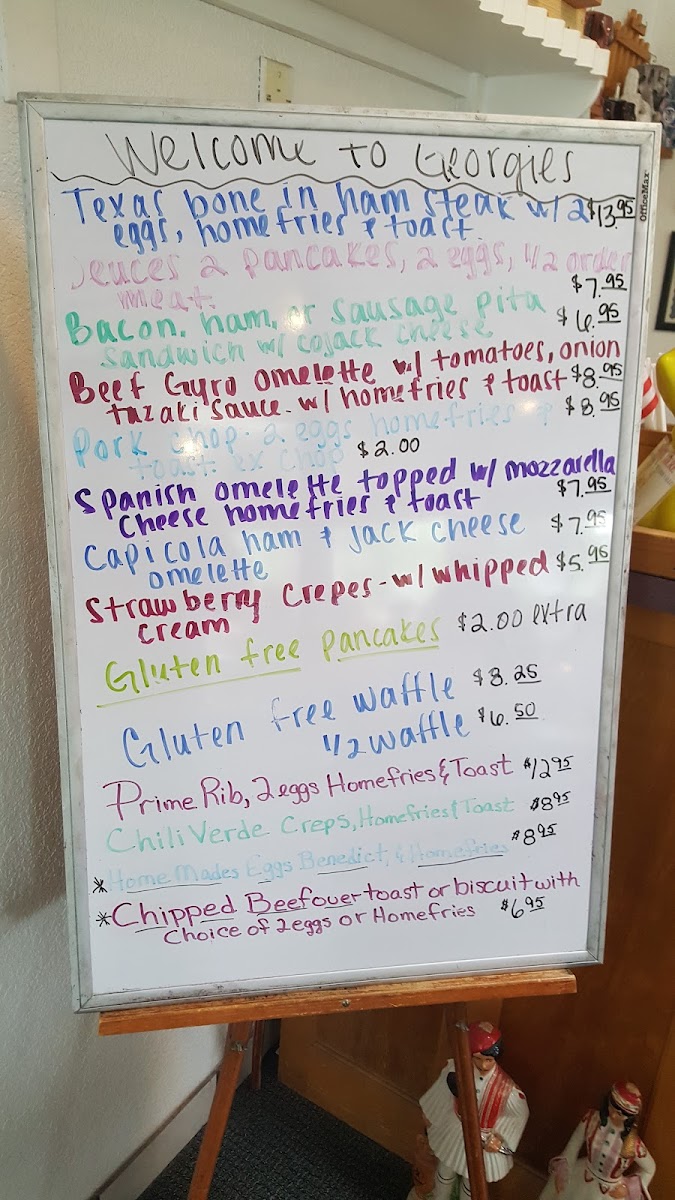 Welcome to Georgies
OfficeMax
Texas bone in ham steak w/ 2 $13.95
eggs, homefries & toast.
Deuces 2 pancakes, 2 eggs, 1/2 order
meat. $7.95
Bacon, ham, or sausage pita $6.95
sandwich w/ cojack cheese
Beef Gyro omelette w/ tomatoes, onion
tazaki sauce. w/ homefries & toast $8.95
Pork chop. 2 eggs homefries & $8.95
toast. ex chop $2.00
Spanish omelette topped w/ mozzarella
cheese homefries & toast $7.95
Capicola ham & jack cheese $7.95
omelette
Strawberry crepes - w/ whipped $5.95
cream
Gluten free pancakes $2.00 extra
Gluten free waffle $8.25
1/2 waffle $6.50
Prime Rib, 2 eggs Homefries & Toast $12.95
Chili Verde Creps, Homefries & Toast $8.95
* Home Mades Eggs Benedict, & Homefries $8.95
* Chipped Beef over toast or biscuit with
Choice of 2 eggs or Homefries $6.95